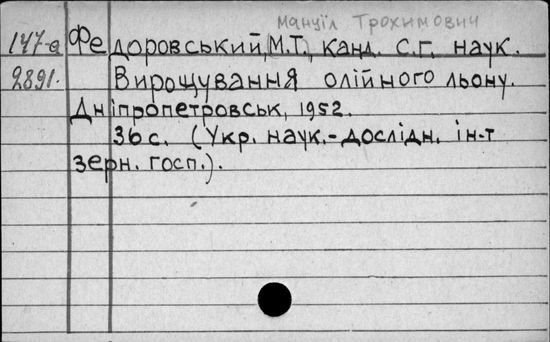 Мануїл Трохимович
147-а Федоровський, М.Т., канд. с.г. наук.
2891. Вирощування олійного льону.
Дніпропетровськ, 1952.
36 с. (Укр. наук.-дослідн. ін-т
зерн. госп.).